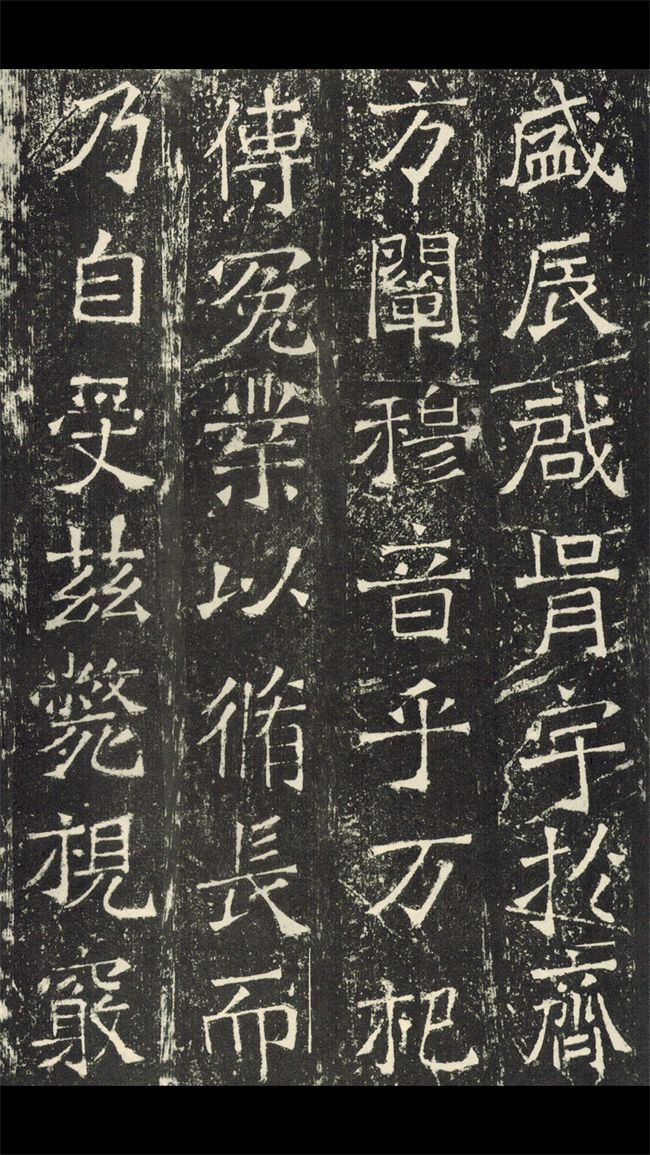 盛辰啟胥宇於齊
方闡穆音乎万祀
傳冕業以脩長而
乃自受茲斃視竅